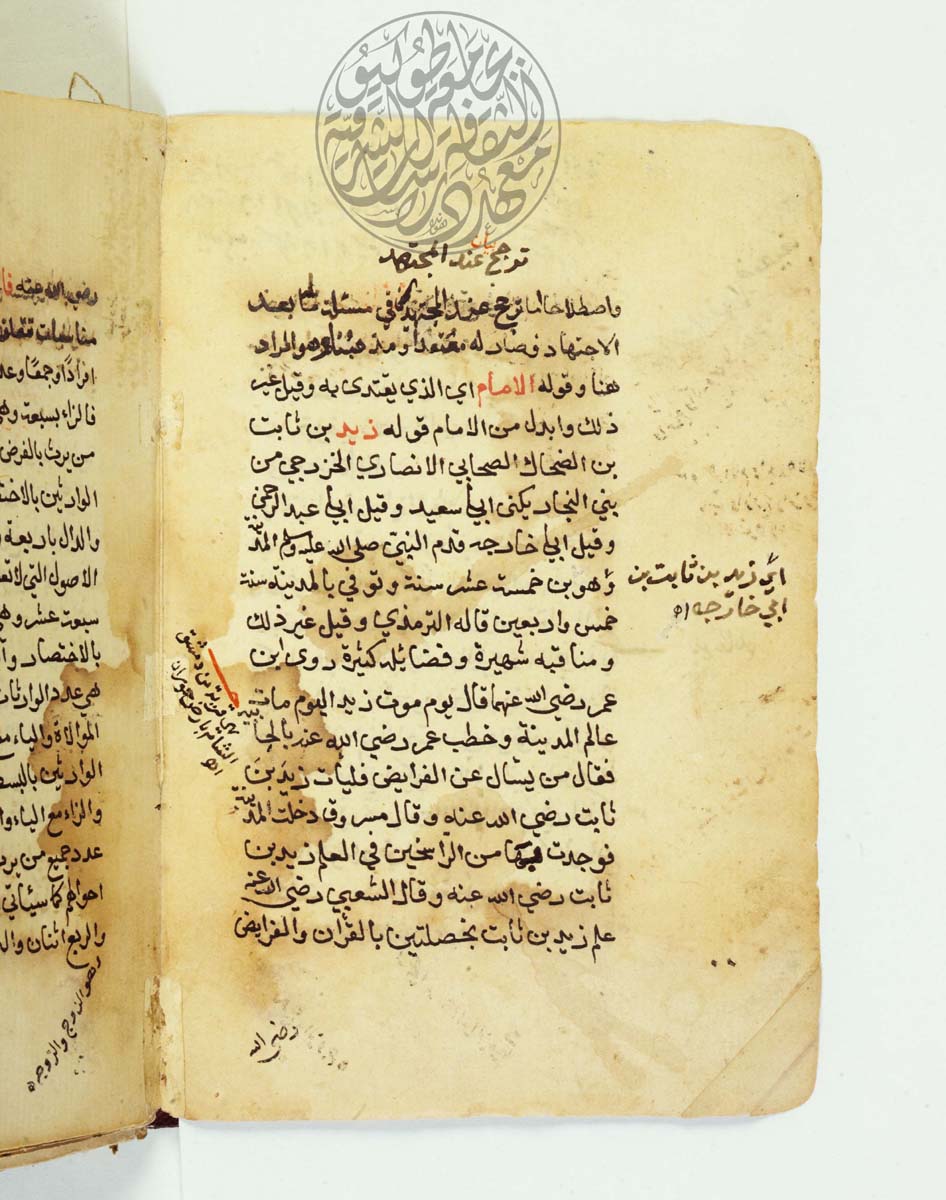 معهد دراسات الثقافة الشرقية بجامعة طوكيو
بيان
ترجح عند المجتهد
واصطلاحا ما ترجح عند المجتهد في مسئلة ما بعد
الاجتهاد فصار له معتقدا ومذهبا وهو المراد
هنا وقوله الامام اي الذي يقتدى به وقيل غير
ذلك وابدل من الامام قوله زيد بن ثابت
بن الضحاك الصحابي الانصاري الخزرجي من
بني النجار يكنى ابا سعيد وقيل ابا عبد الرحمن
وقيل ابا خارجه قدم النبي صلى الله عليه وسلم المدينة
وهو بن خمسة عشر سنة وتوفي بالمدينه سنة
خمس واربعين قاله الترمذي وقيل غير ذلك
ومناقبه شهيرة وفضائله كثيرة روى ابن
عمر رضي الله عنهما قال يوم موت زيد اليوم مات
عالم المدينة وخطب عمر رضي الله عنه بالجابية
فقال من يسال عن الفرايض فليات زيد بن
ثابت رضي الله عنه وقال مسروق دخلت المدينة
فوجدت بها من الراسخين في العلم زيد بن
ثابت رضي الله عنه وقال الشعبي رضي الله عنه
علم زيد بن ثابت بخصلتين بالقرآن والفرايض
رضي الله
اي زيد بن ثابت بن
ابي خارجه اه
هي قرية من دمشق
الشام بارض حوران
اه
رضي الله عنه
افرادا وجمعا
فالزاء بسبعة وهي
من يرث بالفرض
الوارثين
والدال باربعة
الاصول التي
سبعة عشر وهي
بالاختصار
هي عدد الوارثات
الموالاة والياء
الوارثين بالبسط
والزاء مع الياء
عدد جميع من يرث
احوالهم كما سياتي
والربع اثنان
وهو الزوج والزوجه